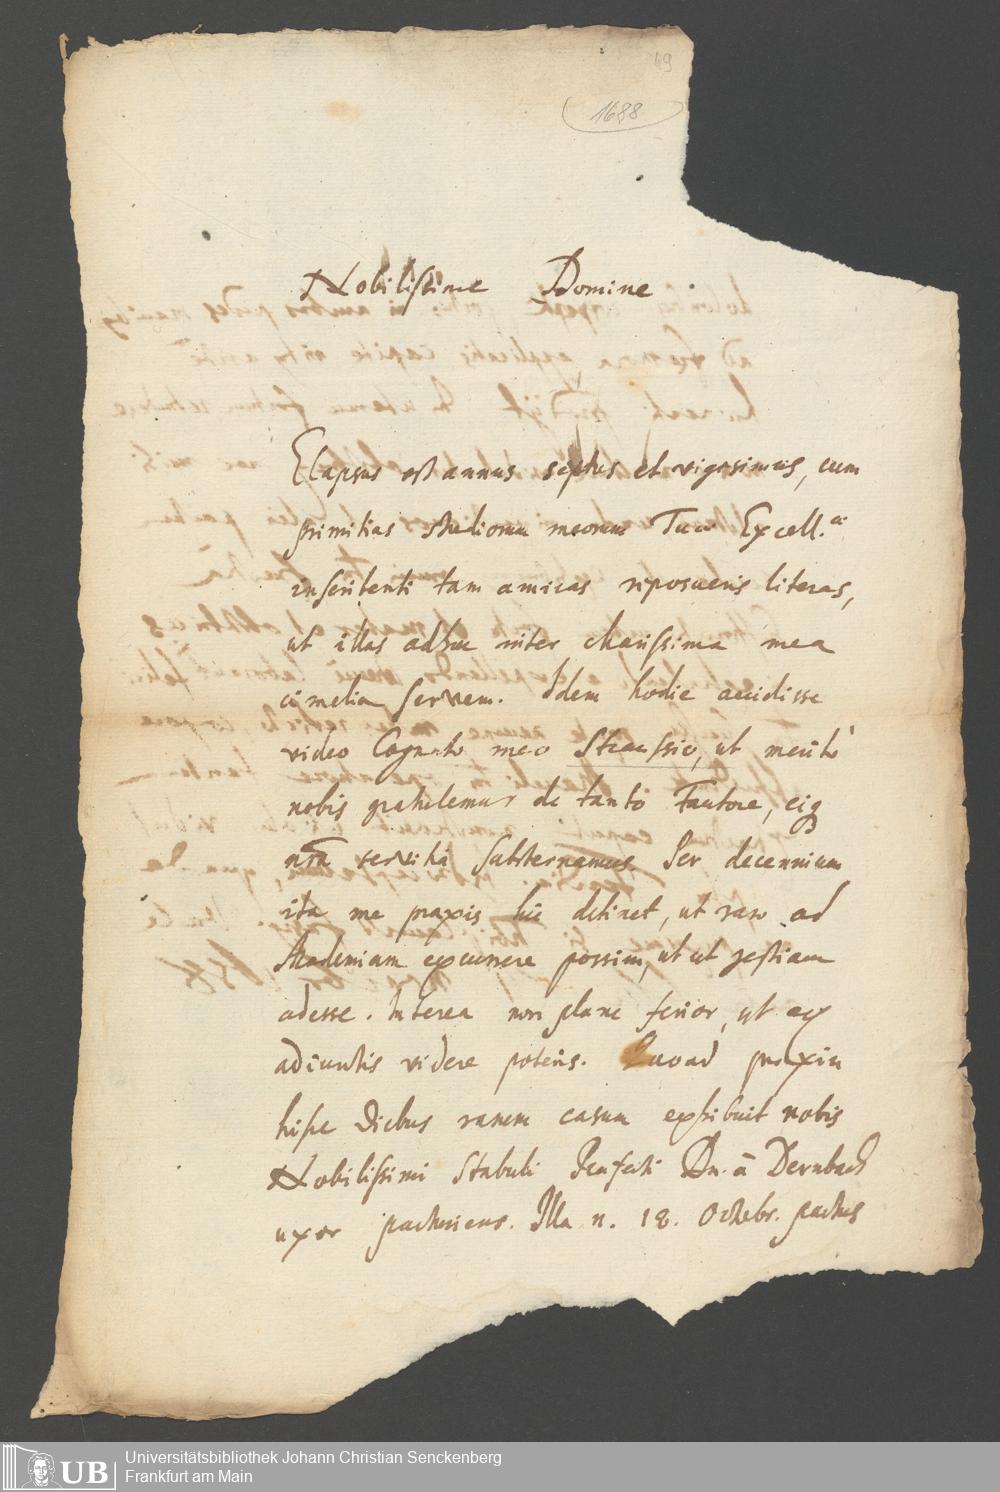 49
1688
Nobilissime Domine
Elapsus est annus septus et vigesimus, cum
primitias studiorum meorum Tuae Excell.ae
inseribenti tam amicas reposueris literas,
ut illas adhuc inter charissima mea
cimelia servem. Idem hodie accidisse
video Cognato meo Straussio, ut meritò
nobis gratulemur de tantô Fautore, eiq
nra servitia substernamus. Per decennium
ita me praxis hic detinet, ut raro ad
Academiam excurrere possim, ut ut gestiam
adesse. Interea non plane ferior, ut ex
adiunctis videre poteris. Quoad praxin
hisce diebus rarum casum exhibuit nobis
Nobilissimi Stabuli Praefecti Dn. â Dernbach
uxor parturiens. Illa n. 18. Octobr. partus
UB
Universitätsbibliothek Johann Christian Senckenberg
Frankfurt am Main